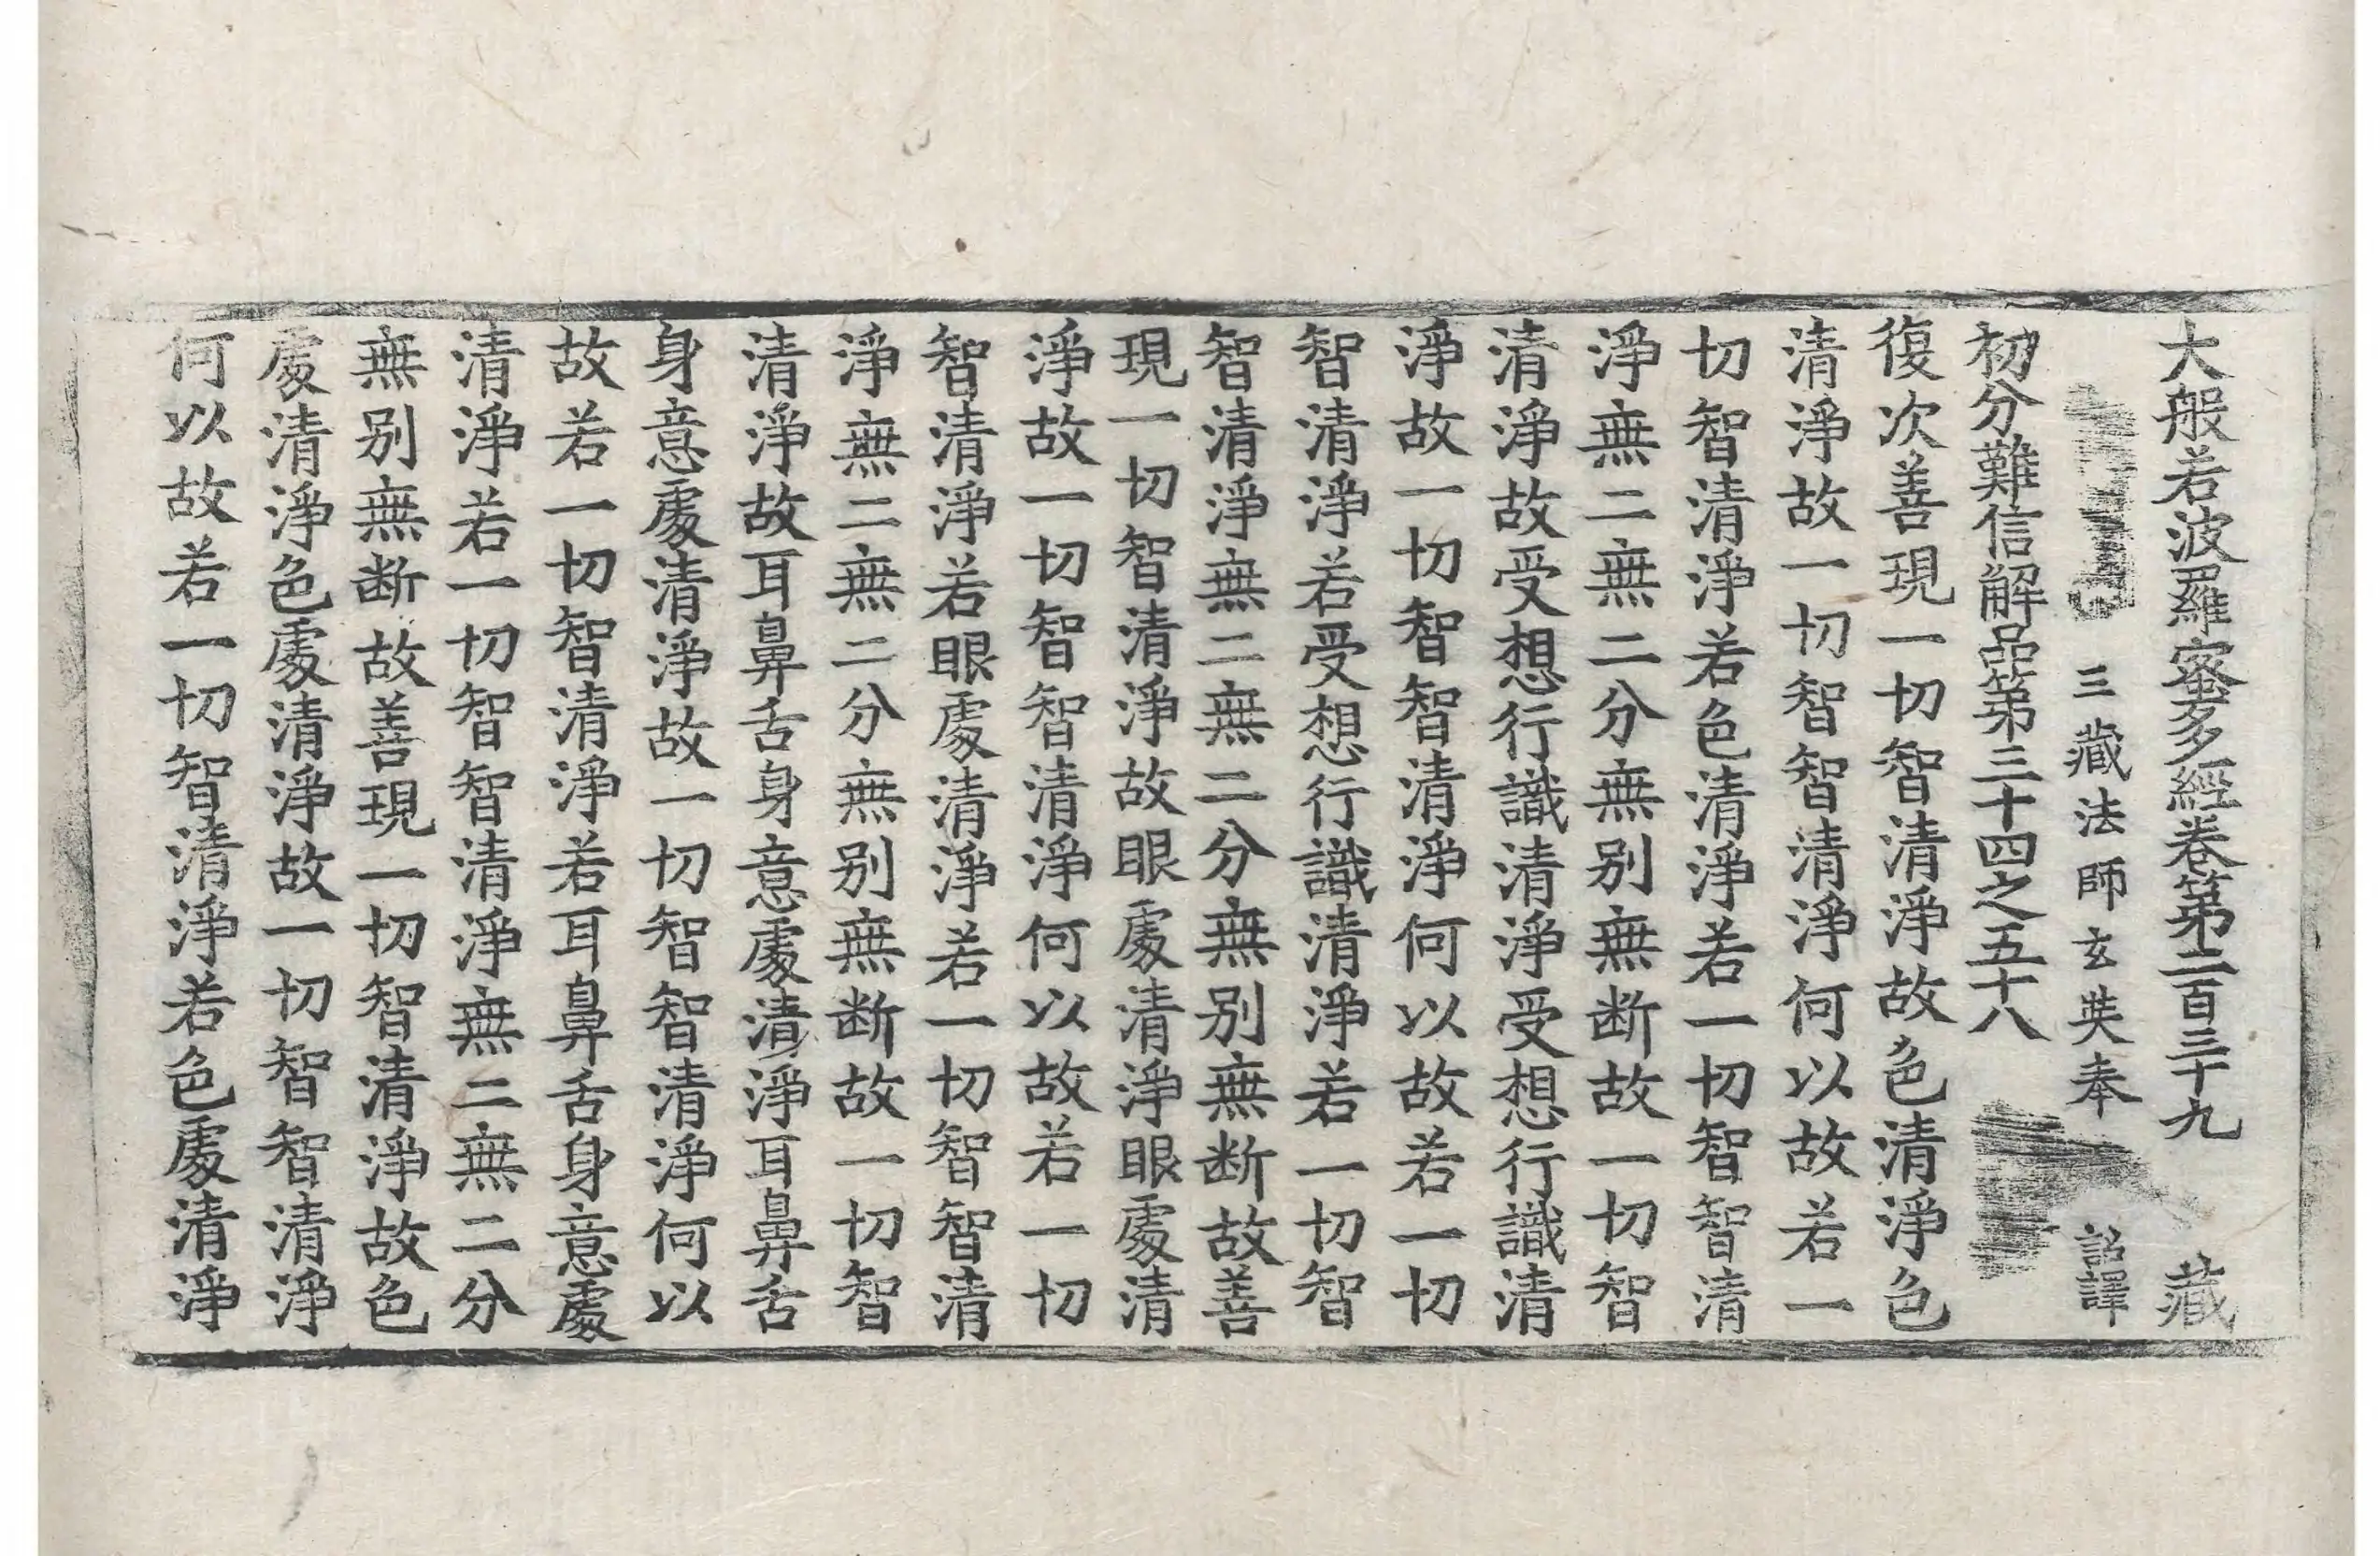 大般若波羅蜜多經卷第二百三十九 藏
三藏法師玄奘奉 詔譯
初分難信解品第三十四之五十八
復次善現一切智清淨故色清淨色
清淨故一切智智清淨何以故若一
切智清淨若色清淨若一切智智清
淨無二無二分無別無断故一切智
清淨故受想行識清淨受想行識清
淨故一切智智清淨何以故若一切
智清淨若受想行識清淨若一切智
智清淨無二無二分無別無断故善
現一切智清淨故眼處清淨眼處清
淨故一切智智清淨何以故若一切
智清淨若眼處清淨若一切智智清
淨無二無二分無別無断故一切智
清淨故耳鼻舌身意處清淨耳鼻舌
身意處清淨故一切智智清淨何以
故若一切智清淨若耳鼻舌身意處
清淨若一切智智清淨無二無二分
無別無断故善現一切智清淨故色
處清淨色處清淨故一切智智清淨
何以故若一切智清淨若色處清淨